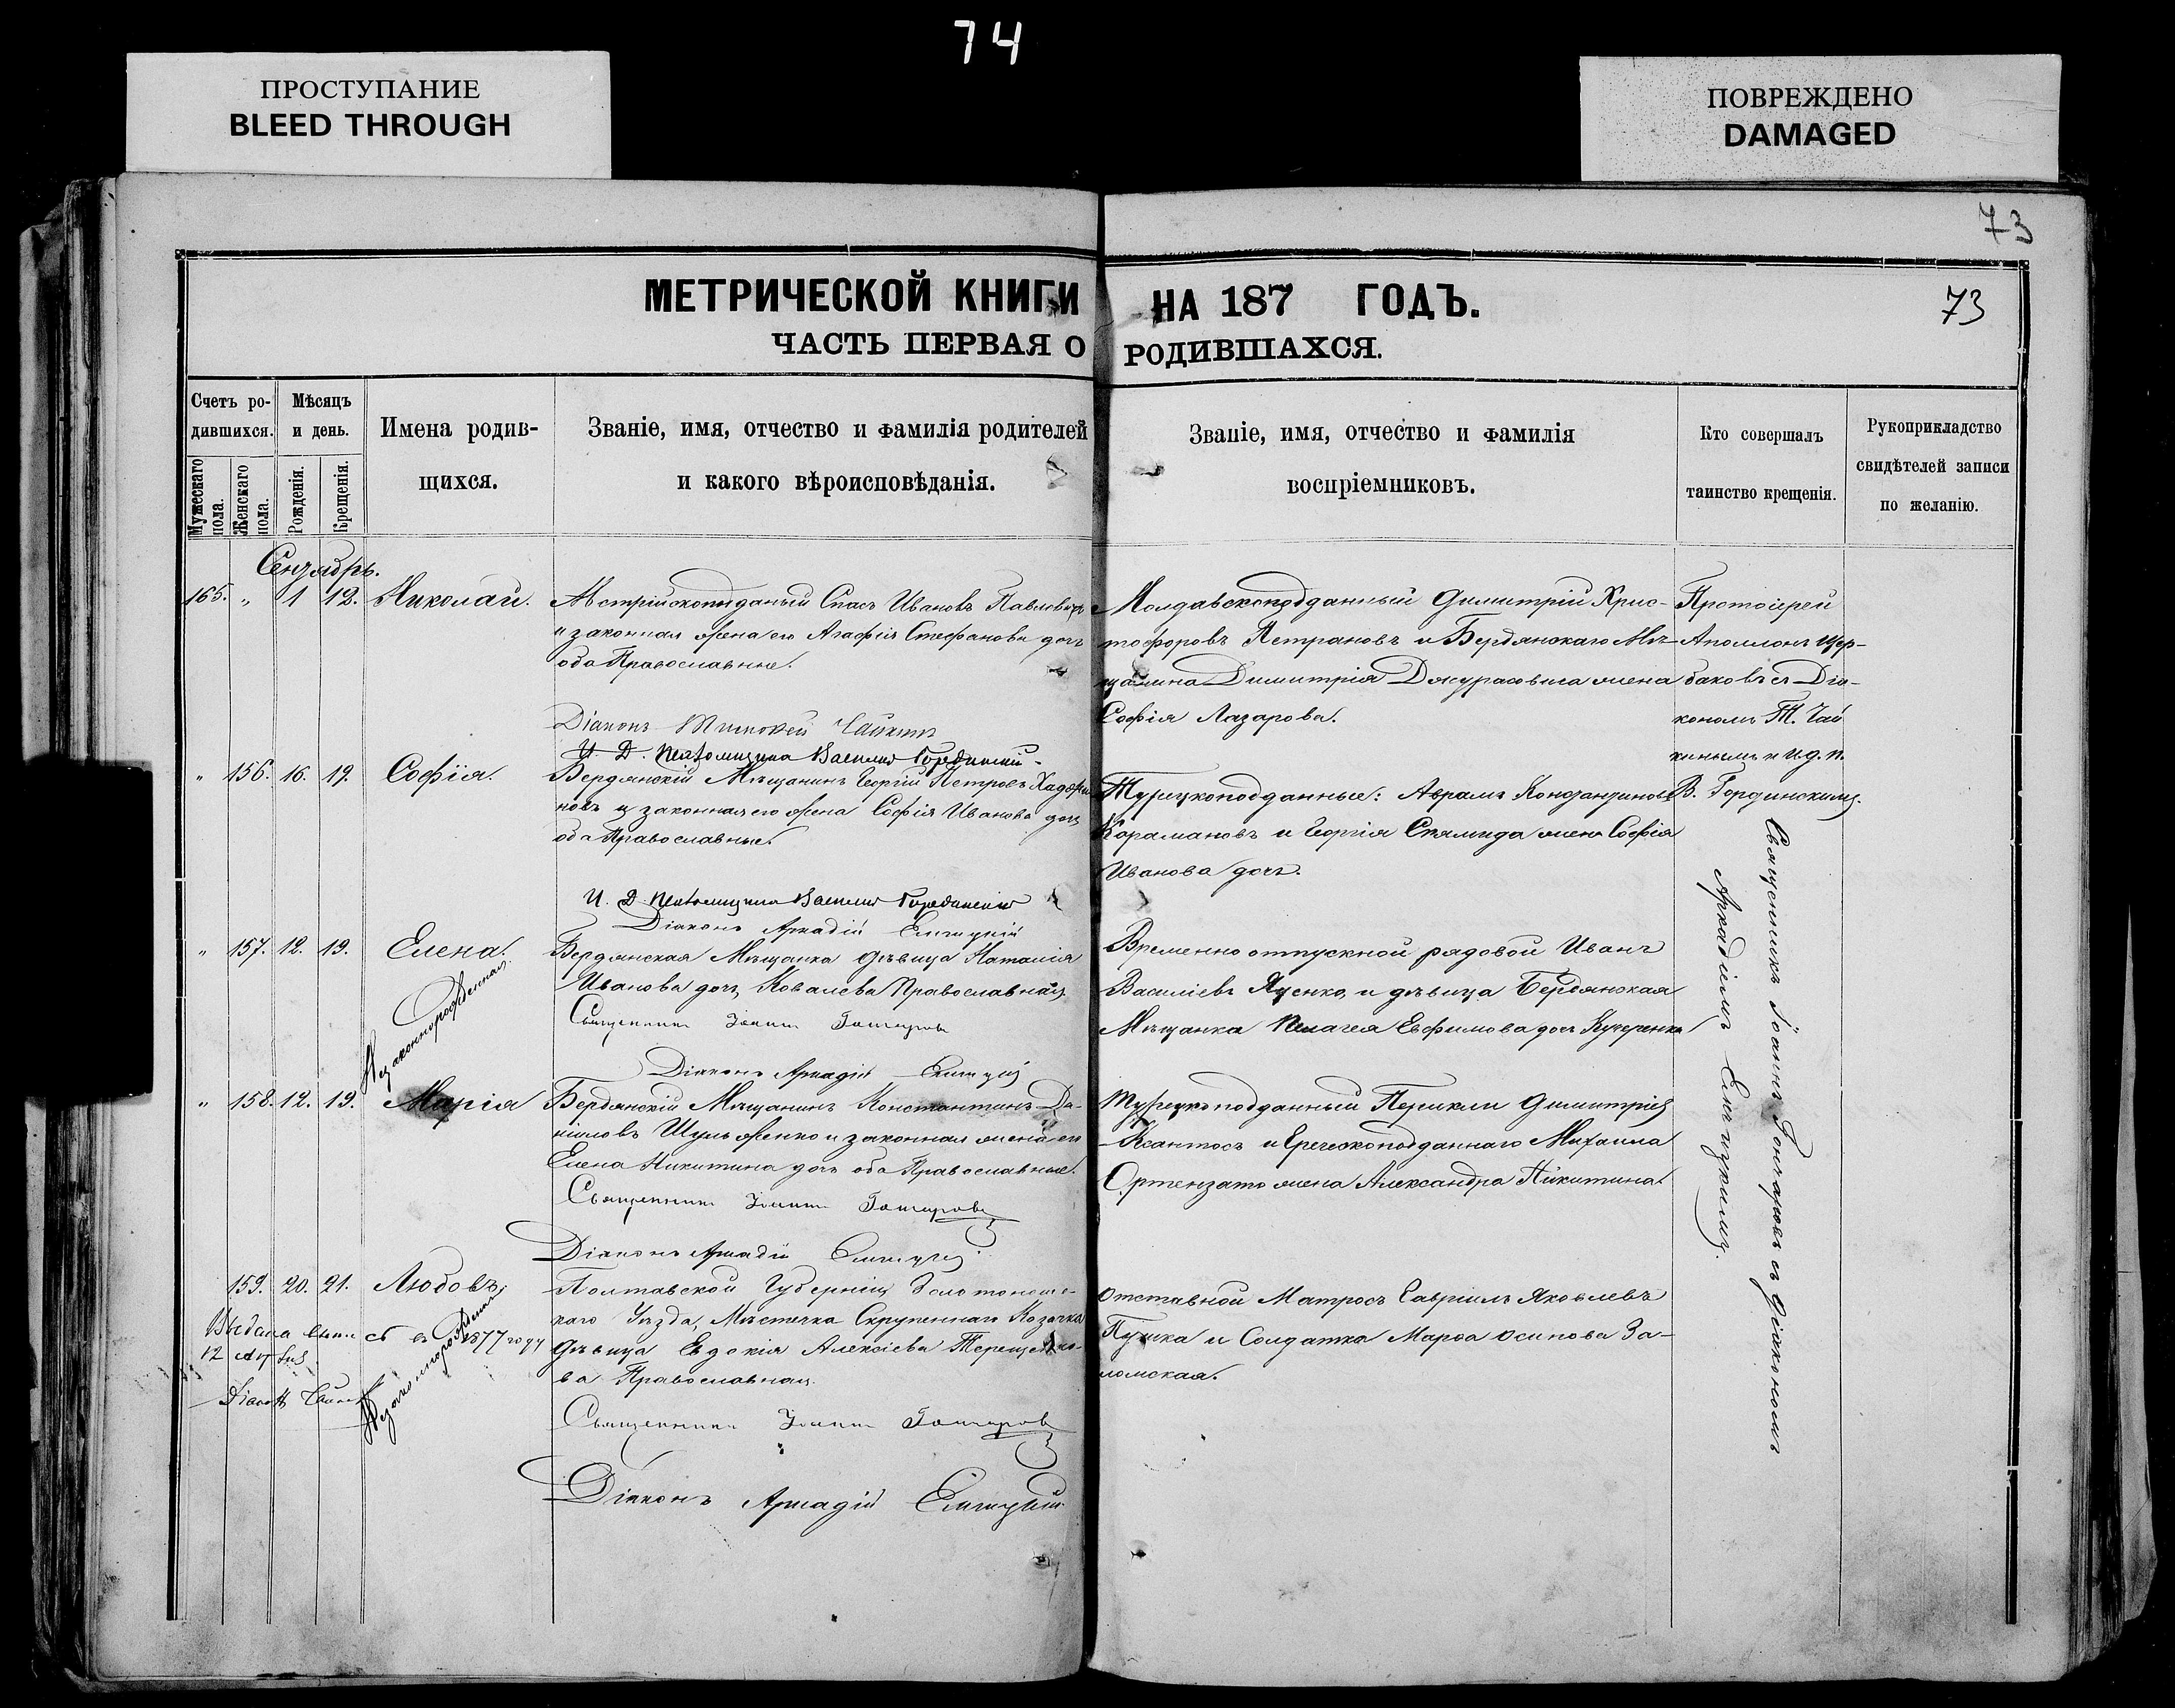 74
ПРОСТУПАНИЕ
BLEED THROUGH
ПОВРЕЖДЕНО
DAMAGED
73
МЕТРИЧЕСКОЙ КНИГИ НА 187 ГОДЪ.
73
ЧАСТЬ ПЕРВАЯ О РОДИВШАХСЯ.
Счетъ ро-
дившихся.
Мужескаго пола.
Женскаго пола.
Мѣсяцъ
и день.
Рожденія.
Крещенія.
Имена родив-
щихся.
Званіе, имя, отчество и фамилія родителей
и какого вѣроисповѣданія.
Званіе, имя, отчество и фамилія
воспріемниковъ.
Кто совершалъ
таинство крещенія.
Рукоприкладство
свидѣтелей записи
по желанію.
Сентябрь.
165. " 1 12. Николай.
Австрійскоподданый Спасъ Ивановъ Павловичъ
и законная жена его Агафія Стефанова дочь
оба Православные.
Діаконъ Тимофей Чайкинъ
И. Д. Псаломщика Василий Гординский
Молдавскоподданный Димитрій Хрис-
тофоровъ Петрановъ и Бердянскаго Мѣ-
щанина Димитрія Джурасовича жена
Софія Лазарова.
Протоіерей
Аполлонъ Щер-
баковъ съ Діа-
кономъ Т. Чай
кинымъ и и.д.п.
В. Гординскимъ.
" 156. 16. 19. Софія.
Бердянскій Мѣщанинъ Георгій Петровъ
новъ и законная его жена Софія Иванова дочь
оба Православные.
И. Д. Псаломщика Василий Гординский
Діаконъ Аркадій
Турецкоподданные: Аврамъ Констандиновъ
Карамановъ и Георгія жена Софія
Иванова дочь.
" 157. 12. 19. Елена.
Незаконнорожденная
Бердянская Мѣщанка дѣвица Наталія
Иванова дочь, Ковалева Православная.
Священникъ Іоаннъ Гончаровъ
Діаконъ Аркадій
Временно отпускной рядовой Иванъ
Василіевъ Яценко, и дѣвица Бердянская
Мѣщанка Пелагея Евфимова дочь Кучеренко
Священникъ Іоаннъ Гончаровъ съ Діакономъ
Аркадіемъ
" 158. 12. 19. Марія
Бердянскій Мѣщанинъ Константинъ Да-
ніиловъ Шульженко и законная жена его
Елена Никитина дочь оба Православные.
Священникъ Іоаннъ Гончаровъ
Діаконъ Аркадій
Турецкоподданный Перикли Димитрія
Ксантосъ и Греческоподданнаго Михаила
Ортензато жена Александра Никитина.
159. 20. 21. Любовь.
Незаконнорожденная
Выдана въ 1877 году
12
Полтавской Губерніи, Золотонош-
каго Уѣзда, Мѣстечка Козачка
дѣвица Евдокія Алексіева
ва Православная.
Священникъ Іоаннъ Гончаровъ
Діаконъ Аркадій
Отставной Матросъ Гавріилъ Яковлевъ
Пушка и Солдатка Марѳа Осипова За-
ломская.